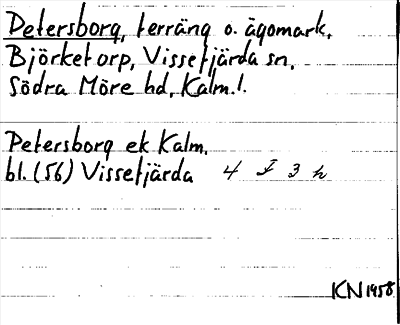 Petersborg, terräng o. ägomark,
Björketorp, Vissefjärda sn,
Södra Möre hd, Kalm. l.
Petersborg ek Kalm.
bl. (56) Vissefjärda 4 F 3 h
KN 1958